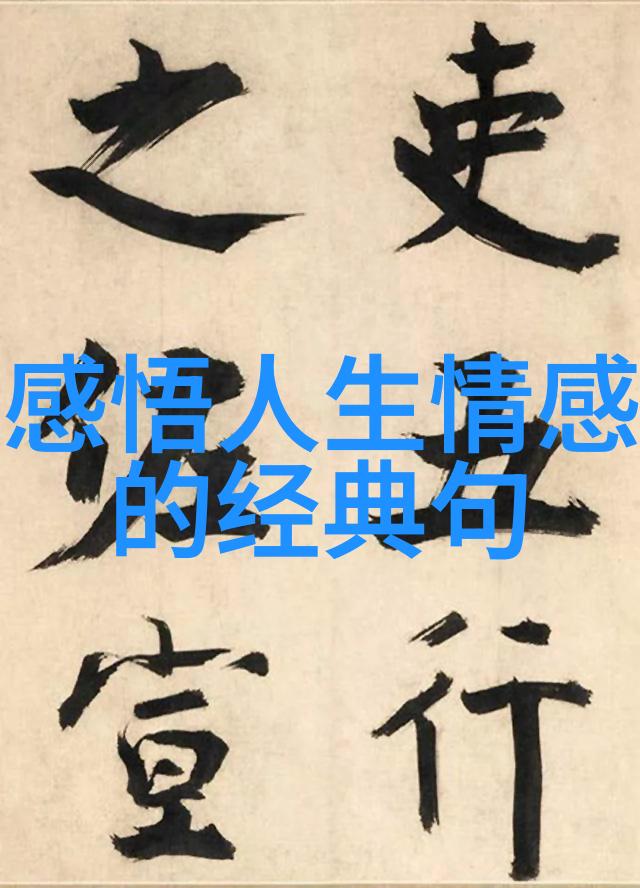 吏行
之宣
感悟人生情感
的经典句